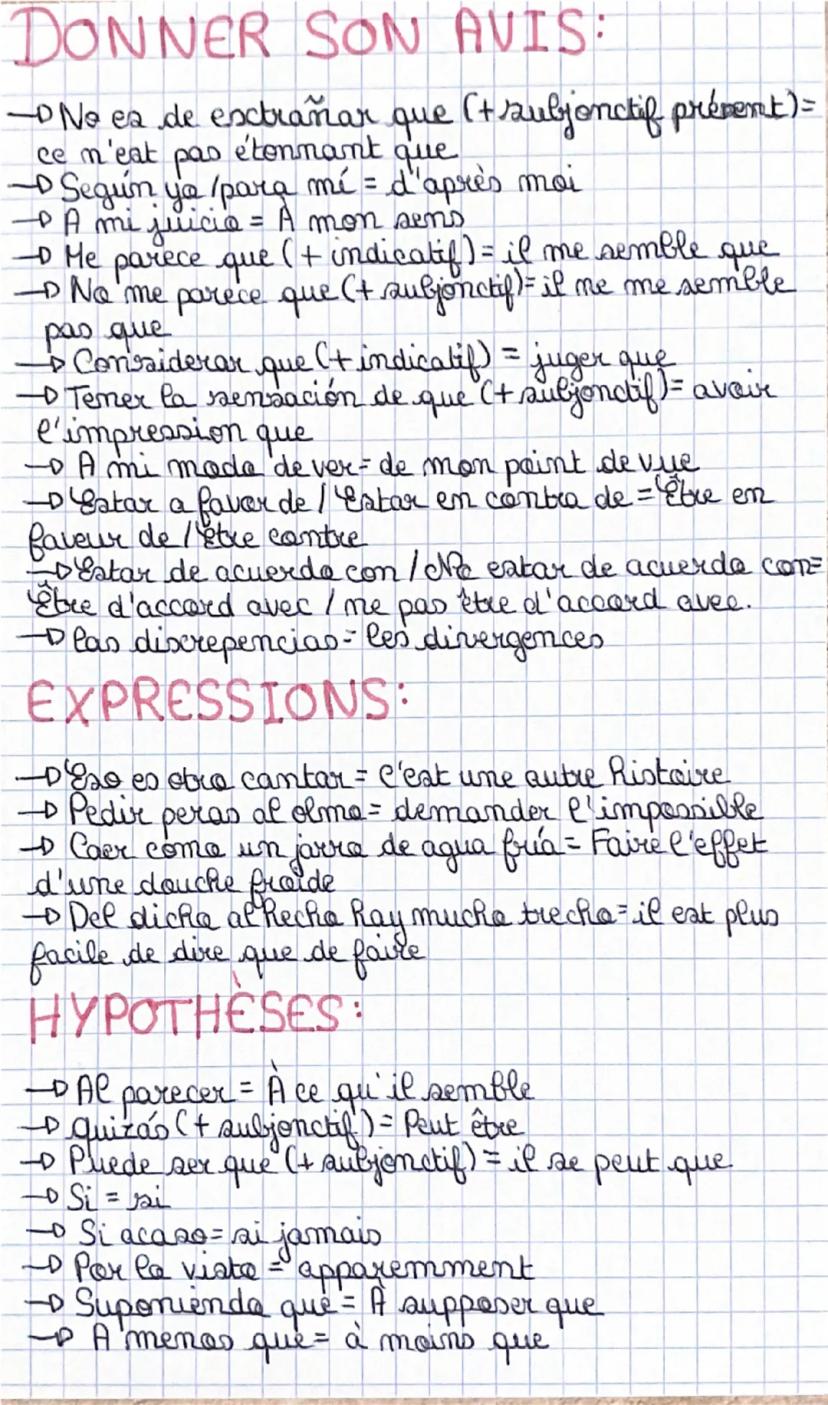 DONNER SON AVIS:
→ No es de extrañar que (+ subjonctif présent) =
ce n'est pas étonnant que
→ Según yo / para mí = d'après moi
→ A mi juicio = À mon sens
→ Me parece que (+ indicatif) = il me semble que
→ No me parece que (+ subjonctif) = il ne me semble
pas que
→ Considerar que (+ indicatif) = juger que
→ Tener la sensación de que (+ subjonctif) = avoir
l'impression que
→ A mi modo de ver = de mon point de vue
→ Estar a favor de / Estar en contra de = Être en
faveur de / Être contre
→ Estar de acuerdo con / No estar de acuerdo con =
Être d'accord avec / ne pas être d'accord avec.
→ las discrepencias = les divergences
EXPRESSIONS:
→ Eso es otro cantar = c'est une autre histoire
→ Pedir peras al olmo = demander l'impossible
→ Caer como un jarro de agua fría = Faire l'effet
d'une douche froide
→ Del dicho al hecho hay mucho trecho = il est plus
facile de dire que de faire
HYPOTHÈSES:
→ Al parecer = À ce qu'il semble
→ quizás (+ subjonctif) = Peut être
→ Puede ser que (+ subjonctif) = il se peut que
→ Si = si
→ Si acaso = si jamais
→ Por lo visto = apparemment
→ Suponiendo que = À supposer que
→ A menos que = à moins que